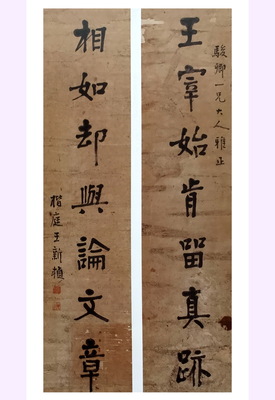 駿卿一兄大人雅正
王宰始肯留真跡
相如却與論文章
楷庭王新楨